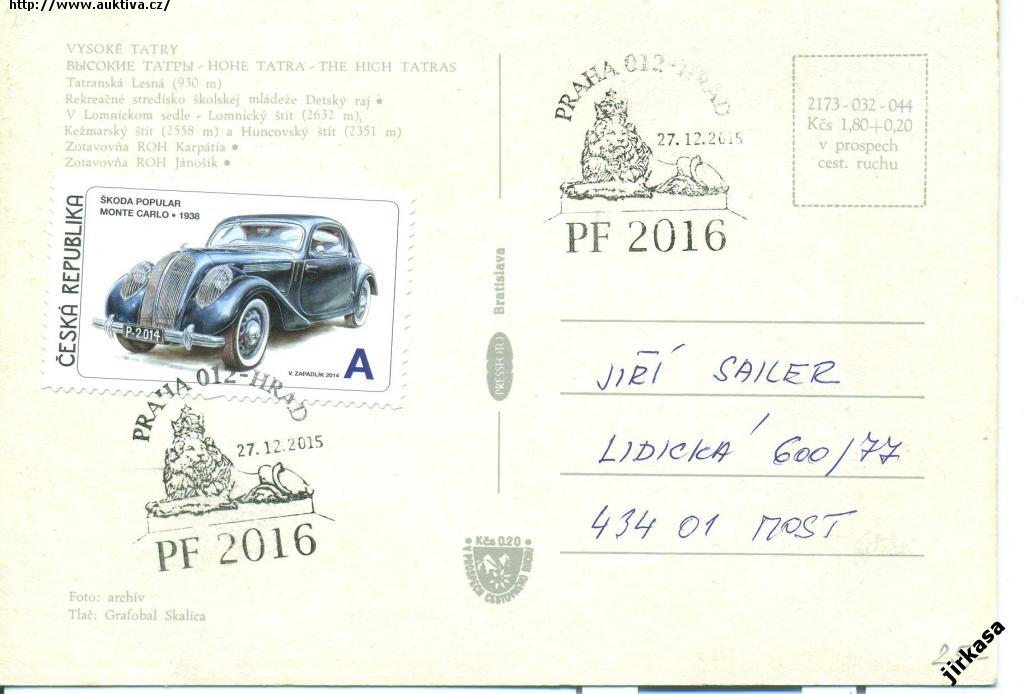 http://www.auktiva.cz/
VYSOKÉ TATRY
ВЫСОКИЕ ТАТРЫ - HOHE TATRA - THE HIGH TATRAS
Tatranská Lesná (930 m)
Rekreačné stredisko školskej mládeže Detský raj •
V Lomnickom sedle - Lomnický štít (2632 m),
Kežmarský štít (2558 m) a Huncovský štít (2351 m)
Zotavovňa ROH Karpátia •
Zotavovňa ROH Jánošík •
ČESKÁ REPUBLIKA
ŠKODA POPULAR
MONTE CARLO • 1938
P-2.014
V. ZAPADLÍK 2014
A
PRAHA 012-HRAD
27.12.2015
PF 2016
Foto: archív
Tlač: Grafobal Skalica
PRESSFOTO Bratislava
• Kčs 0.20 •
V PROSPECH CESTOVNÉHO RUCHU
PRAHA 012-HRAD
27.12.2015
PF 2016
2173-032-044
Kčs 1,80+0,20
v prospech
cest. ruchu
JIŘÍ SAILER
LIDICKÁ 600/77
434 01 MOST
jirkasa